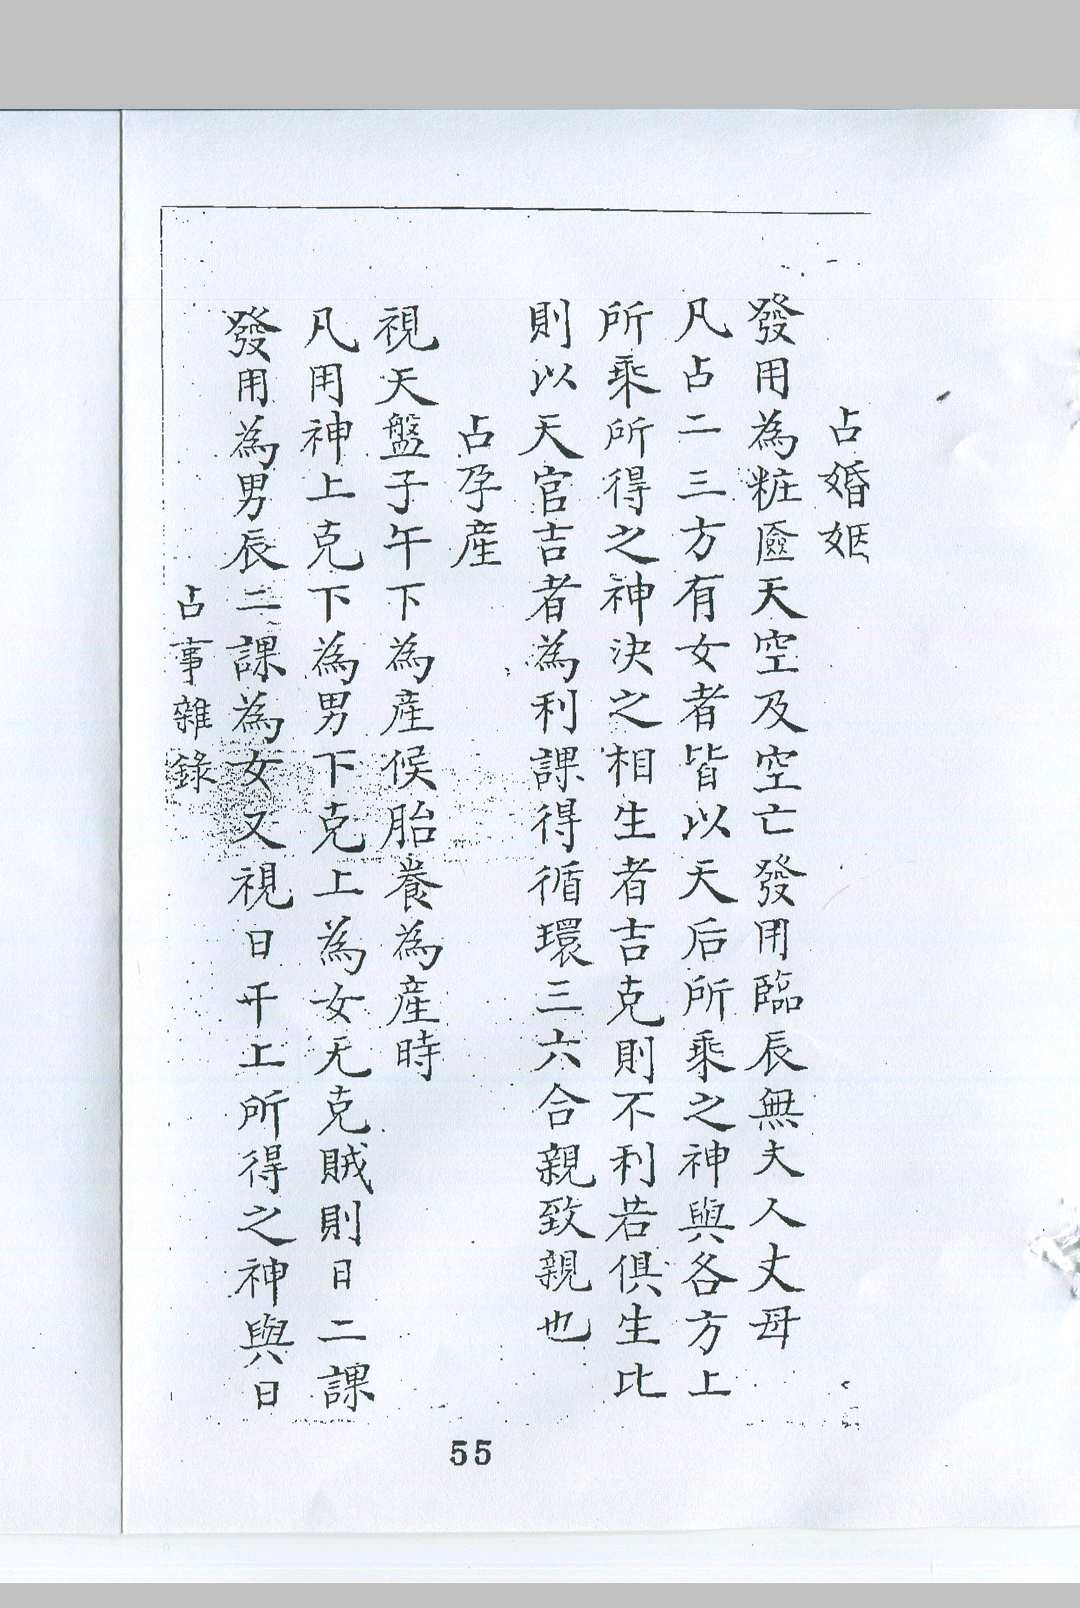 占婚姻
發用為粧匳天空及空亡發用臨辰無夫人丈母
凡占二三方有女者皆以天后所乘之神與各方上
所乘所得之神決之相生者吉克則不利若俱生比
則以天官吉者為利課得循環三六合親致親也
占孕產
視天盤子午下為產候胎養為產時
凡用神上克下為男下克上為女无克賊則日二課
發用為男辰二課為女又視日干上所得之神與日
占事雜錄
55